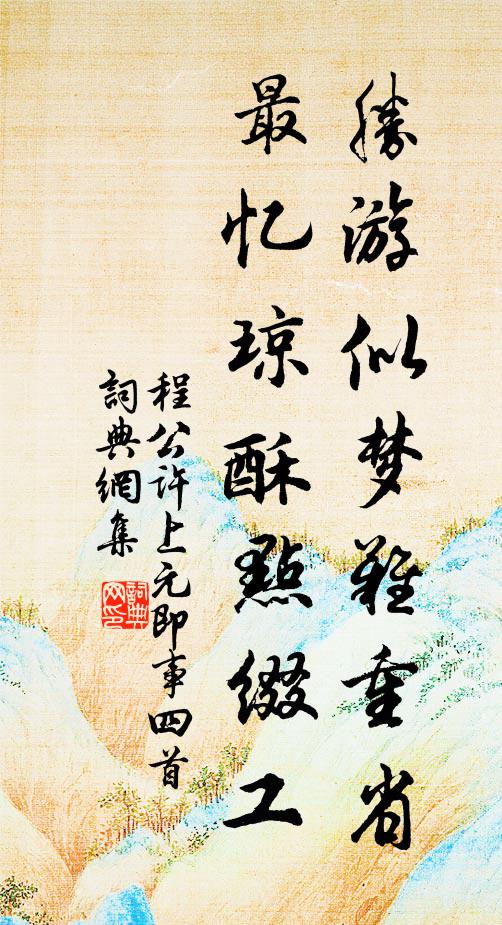 胜游似梦难重省
最忆琼酥點缀工
程公许上元即事四首
詞典網集
詞典網印